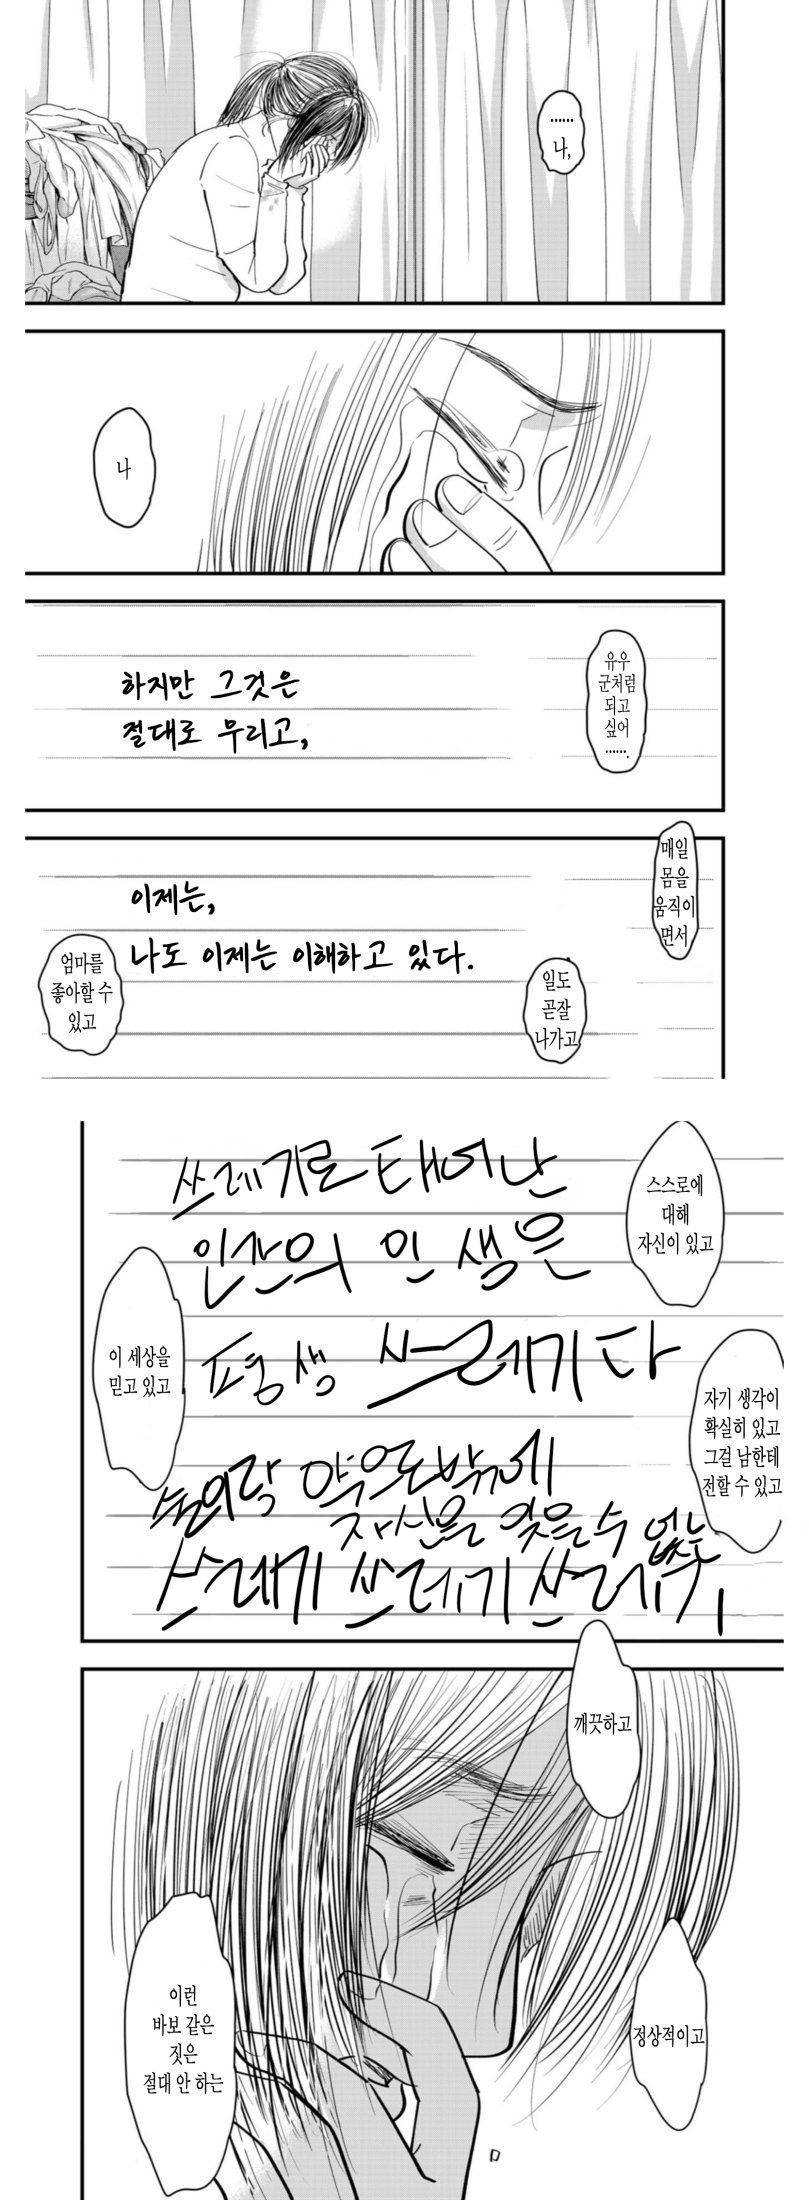 ……
나,
나
유우
군처럼
되고
싶어
…….
하지만 그것은
절대로 무리고,
매일
몸을
움직이
면서
일도
곧잘
나가고
이제는,
나도 이제는 이해하고 있다.
엄마를
좋아할 수
있고
스스로에
대해
자신이 있고
쓰레기로 태어난
인간의 인생은
평생 쓰레기다
자기 생각이
확실히 있고
그걸 남한테
전할 수 있고
이 세상을
믿고 있고
밖에
자신을 찾을 수 없는
쓰레기 쓰레기 쓰레기
깨끗하고
정상적이고
이런
바보 같은
짓은
절대 안 하는